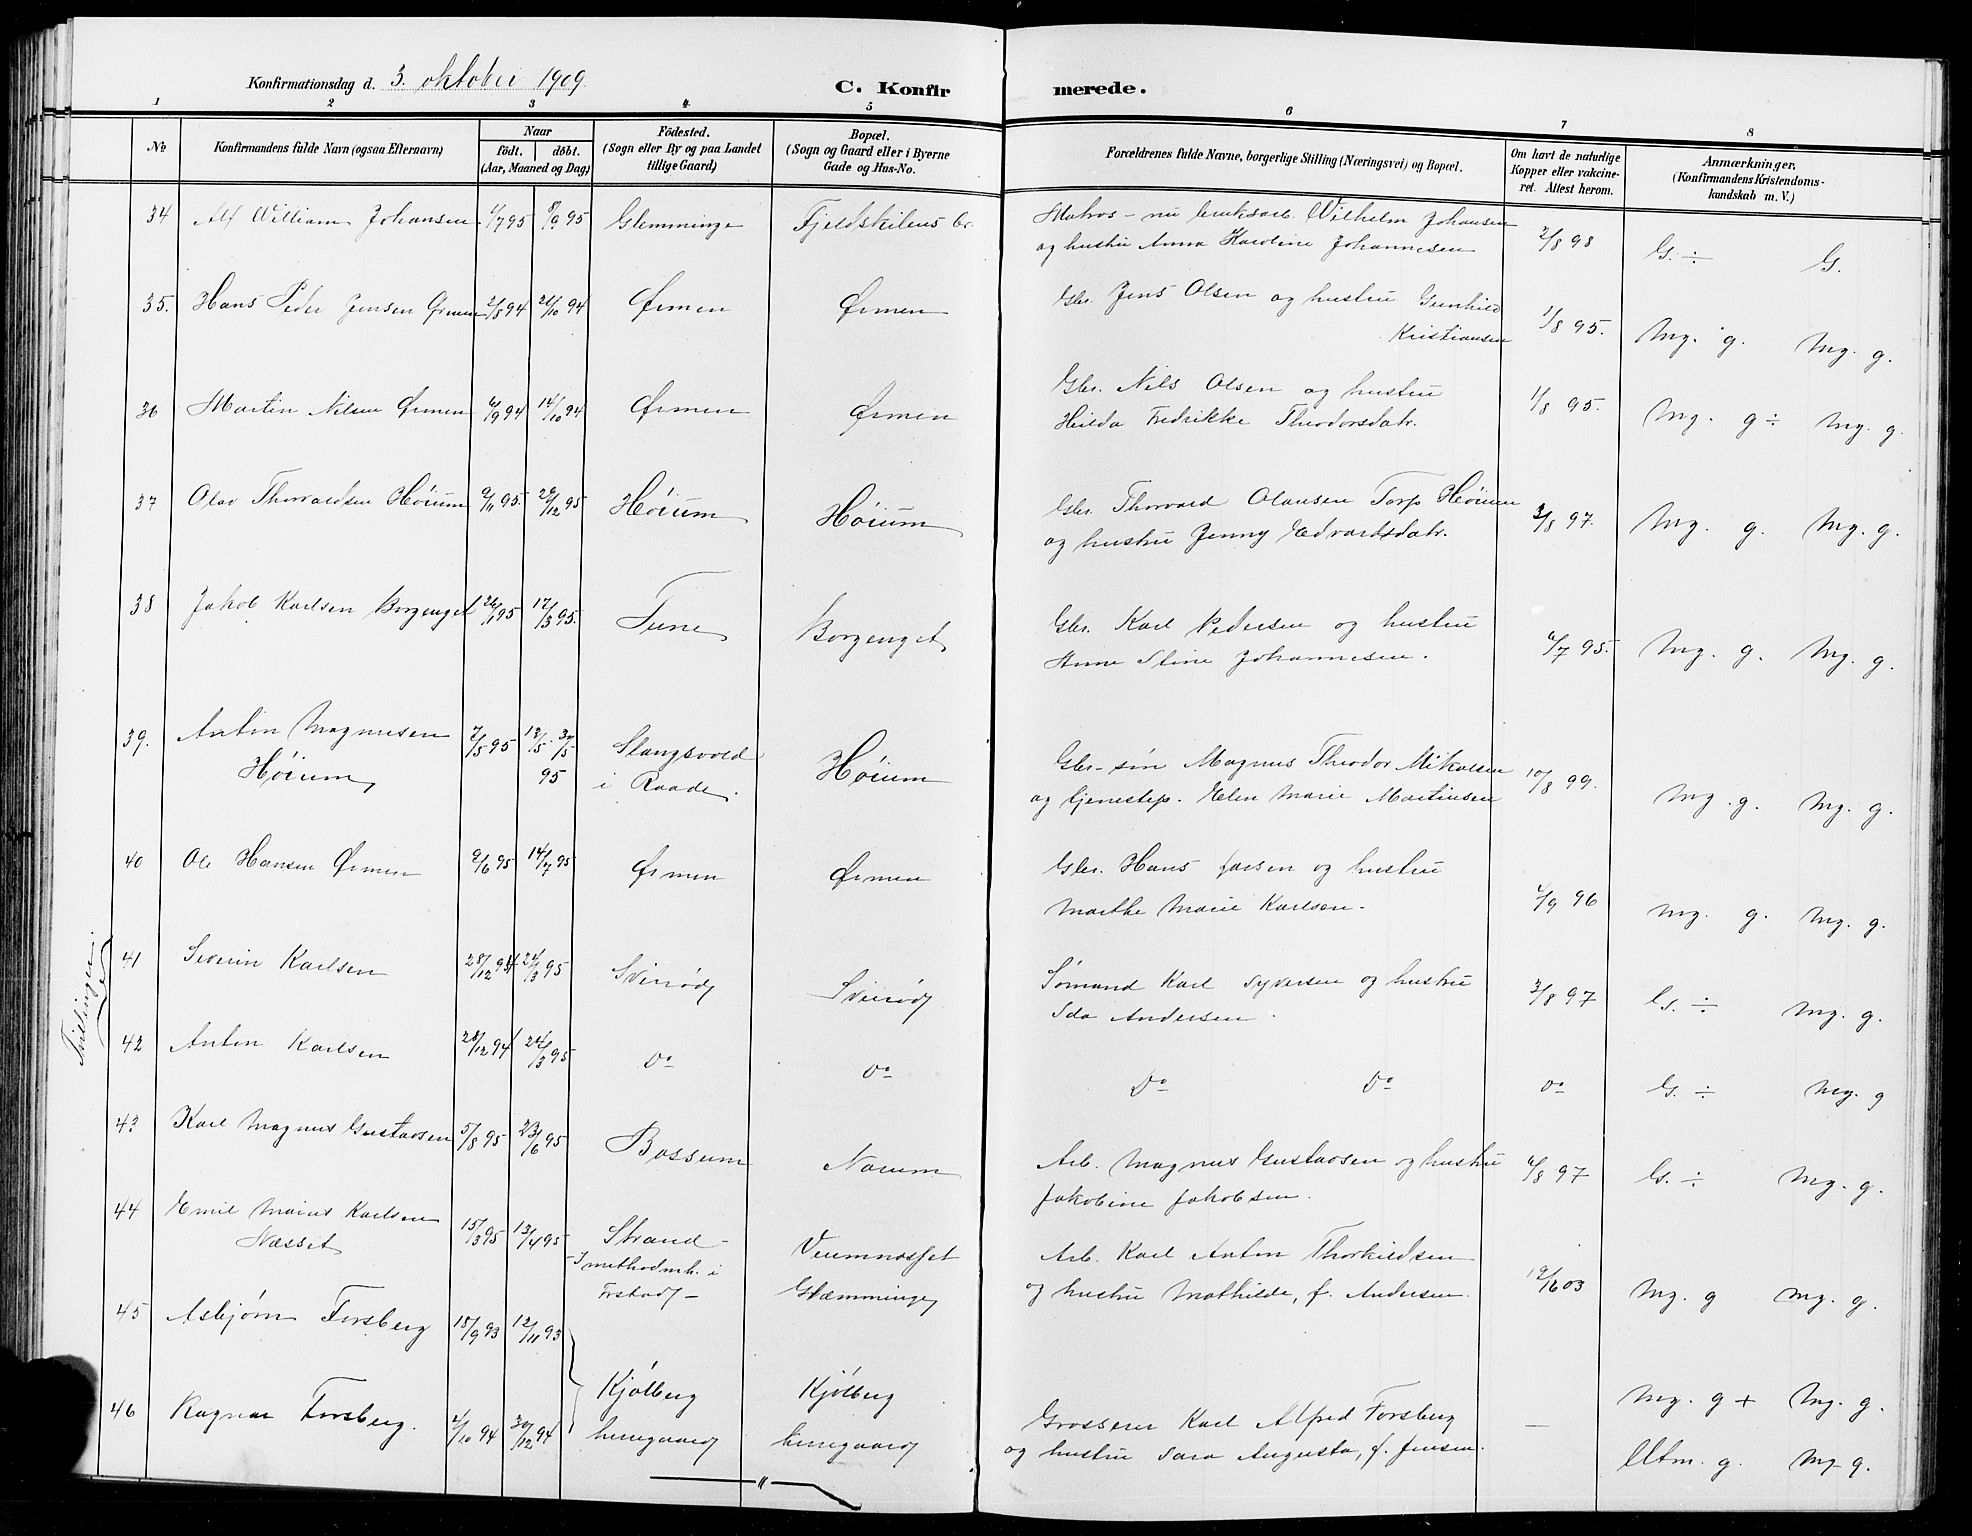 Konfirmationsdag d. 3. oktober 1909
C. Konfirmerede.
1 2 3 4 5 6 7 8
No
Konfirmandens fulde Navn (ogsaa Efternavn)
Naar
födt. döbt.
(Aar, Maaned og Dag)
Födested.
(Sogn eller By og paa Landet
tillige Gaard)
Bopæl.
(Sogn og Gaard eller i Byerne
Gade og Hus-No.
Forældrenes fulde Navne, borgerlige Stilling (Næringsvei) og Bopæl.
Om havt de naturlige
Kopper eller vakcine-
ret. Attest herom.
Anmærkninger.
(Konfirmandens Kristendoms-
kundskab m. V.)
34 Alf William Johansen 1/7 95 8/9 95 Glemminge Fjeldskilens br. Matros - nu bruksarb. Wilhelm Johansen
og hustru Anna Karoline Johannesen 2/8 98 G. ÷ G.
35. Hans Peder Jensen Ørmen 2/8 94 21/10 94 Ørmen Ørmen Gbr. Jens Olsen og hustru Gunhild
Kristiansen 1/8 95. Mg. g. Mg. g.
36 Martin Nilsen Ørmen 6/9 94 14/10 94 Ørmen Ørmen Gbr. Nils Olsen og hustru
Hilda Fredrikke Theodorsdatr. 1/8 95. Mg. g ÷ Mg. g.
37 Olav Thorvaldsen Höium 9/11 95. 29/12 95 Höium Höium Gbr. Thorvald Olausen Torp Höium
og hustru Jenny Edvardsdatr. 3/8 97. Mg. g. Mg. g.
38 Jakob Karlsen Borgenget 26/1 95 17/3 95. Tune Borgenget Gbr. Karl Pedersen og hustru
Anne Stine Johannesen. 6/7 95. Mg. g. Mg. g.
39. Anton Magnusen
Höium 7/5 95 13/5 - 30/5
95 Slangsvold
i Raade. Höium Gbr-sön Magnus Theodor Mikalsen
og tjenestep. Elen Marie Martinsen 10/8 99. Mg. g. Mg. g.
40 Ole Hansen Ørmen 9/6 95 14/7 95 Ørmen Ørmen Gbr. Hans Jaksen og hustru
Marthe Marie Karlsen. 1/9 96 Mg. g. Mg. g.
Tvillinger
41 Severin Karlsen 28/12 94 24/3 95 Sviröd Sviröd Sömand Karl Syversen og hustru
Ida Andersen. 3/8 97 G. ÷ Mg. g.
42 Anton Karlsen 28/12 94 24/3 95 Do Do Do Do Do G. ÷ Mg. g
43 Karl Magnus Gustavsen 5/8 95 23/6 95 Bossum Norum Arb. Magnus Gustavsen og hustru
Jakobine Jakobsen. 6/8 97 G. ÷ Mg. g.
44 Emil Marius Karlsen
Næsset 15/3 95 13/4 95 Strand -
i methodmh. i
Frstad - Veumnæsset
Glæmminge Arb. Karl Anton Thorkildsen
og hustru Mathilde, f. Andersen. 19/6 03 Mg. g Mg. g.
45 Asbjörn Forsberg 18/9 93 12/11 93
Kjölberg Kjölberg
Mg. g + Mg. g.
46 Ragnar Forsberg. 4/10 94 30/12 94 herregaard herregaard Grosserer Karl Alfred Forsberg
og hustru Sara Augusta, f. Jensen. — Utm. g. Mg. g.